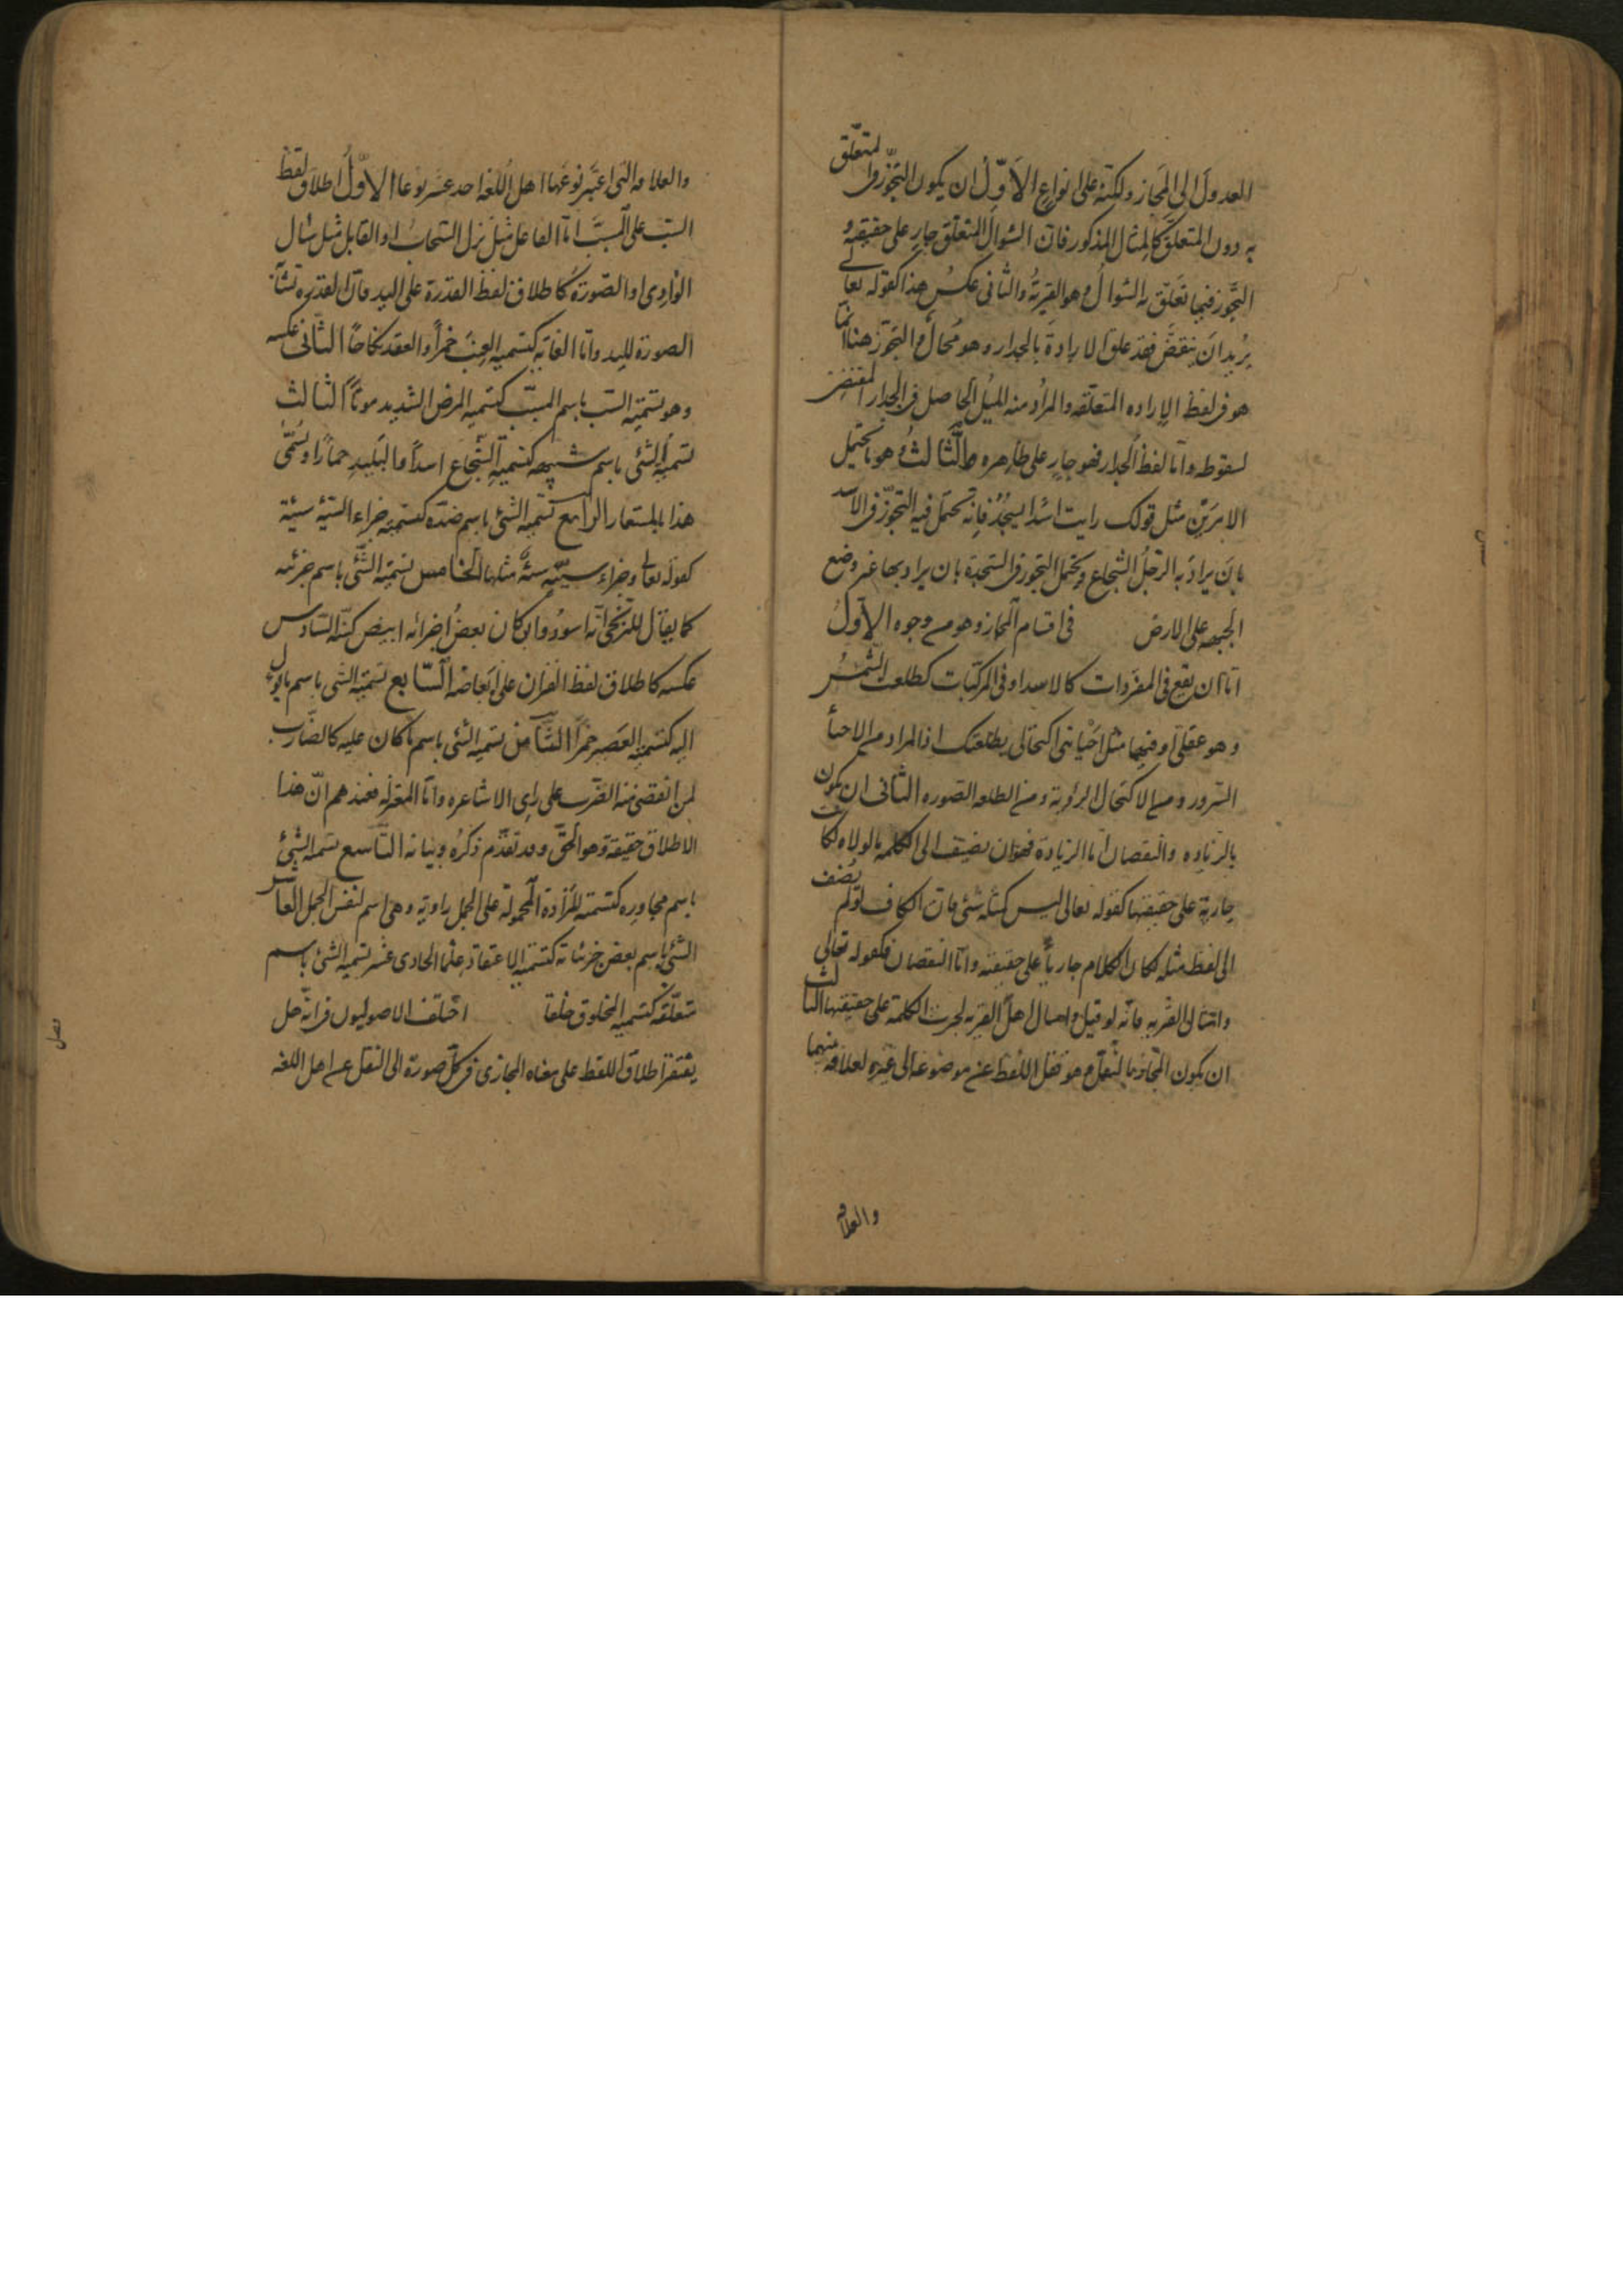 العدول الى المجاز ولكنه على انواع الاول ان يكون التجوز فى المتعلق
به دون المتعلق كالمثال المذكور فان السؤال المتعلق جار على حقيقته و
التجوز فيما تعلق به السؤال وهو القرية والثانى عكس هذا كقوله تعالى
يريد ان ينقض فقد علق الارادة بالجدار وهو محال والتجوز هنا انما
هو فى لفظ الارادة المتعلقه والمراد منه الميل الحاصل فى الجدار المقتضى
لسقوطه واما لفظ الجدار فهو جار على ظاهره والثالث وهو ما يحتمل
الامرين مثل قولك رايت اسدا يسجد فانه يحتمل فيه التجوز فى الاسد
بان يراد به الرجل الشجاع ويحتمل التجوز فى السجدة بان يراد بها غير وضع
الجبهه على الارض فى اقسام المجاز وهو من وجوه الاول
اما ان يقع فى المفردات كالاسد او فى المركبات كطلعت الشمس
وهو عقلى او فيهما مثل احيانى اكتحالى بطلعتك اذ المراد من الاحيا
السرور ومن الاكتحال الرؤية ومن الطلعه الصوره الثانى ان يكون
بالزياده والنقصان اما الزيادة فهو ان يضيف الى الكلمه ما لولاه لكانت
جارية على حقيقتها كقوله تعالى ليس كمثله شئ فان الكاف لو لم يضف
الى لفظ مثله لكان الكلام جاريا على حقيقته واما النقصان فكقوله تعالى
واسئال القريه فانه لو قيل واسال اهل القريه لجرت الكلمة على حقيقتها الثالث
ان يكون المجاز بالنقل وهو نقل اللفظ عن موضوعه الى غيره لعلاقه بينهما
والعلاقه
والعلاقه التى اعتبر نوعها اهل اللغة احد عشر نوعا الاول اطلاق لفظ
السبب على المسبب اما الفاعل مثل نزل السحاب او القابل مثل سال
الوادى او الصورة كاطلاق لفظ القدرة على اليد فان القدره
الصورة لليد واما الغايه كتسميه العنب خمرا والعقد نكاحا الثانى عكسه
وهو تسميه السبب باسم المسبب كتسميه المرض الشديد موتا الثالث
تسمية الشئ باسم شبيهه كتسمية الشجاع اسدا والبليد حمارا ويسمى
هذا بالمستعار الرابع تسميه الشئ باسم ضده كتسميه جزاء السيئه سيئة
كقوله تعالى وجزاء سيئة سيئة مثلها الخامس تسميه الشئ باسم جزئه
كما يقال للزنجى انه اسود وان كان بعض اجزائه ابيض كسنه السادس
عكسه كاطلاق لفظ القران على ابعاضه السابع تسميه الشى باسم ما يؤل
اليه كتسمية العصير خمرا الثامن تسميه الشئ باسم ما كان عليه كالضارب
لمن انقضى منه الضرب على راى الاشاعره واما المعتزله فعندهم ان هذا
الاطلاق حقيقة وهو الحق وقد تقدم ذكره وبيانه التاسع تسميه الشئ
باسم مجاوره كتسمته المزادة المحمولة على الجمل راوية وهى اسم لنفس الجمل العاشر
الشئ باسم بعض جزئياته كتسميه الاعتقاد علما الحادى عشر تسميه الشئ باسم
متعلقه كتسمية المخلوق خلقا اختلف الاصوليون فى انه هل
يفتقر اطلاق اللفظ على معناه المجازى فى كل صورة الى النقل عن اهل اللغه
فصل